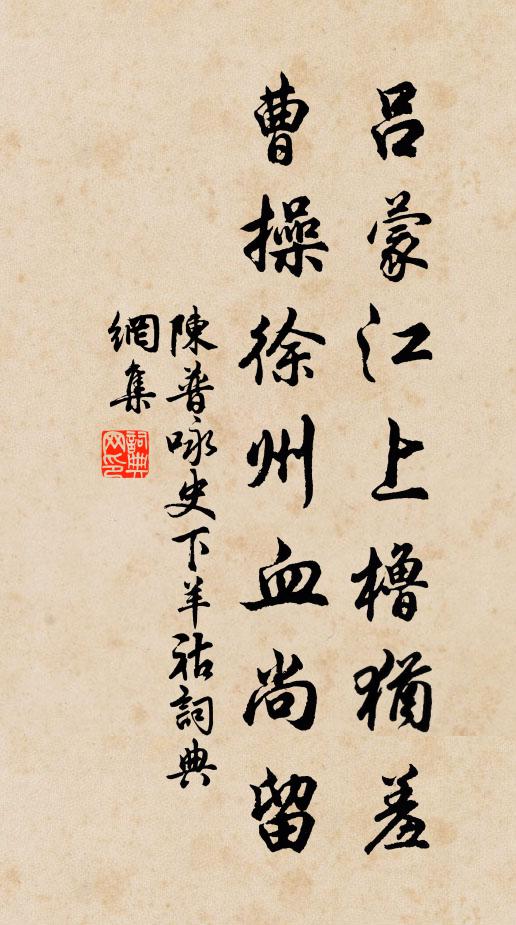 吕蒙江上櫓猶羞
曹操徐州血尚留
陳普咏史下羊祜詞典
網集
詞典
网印